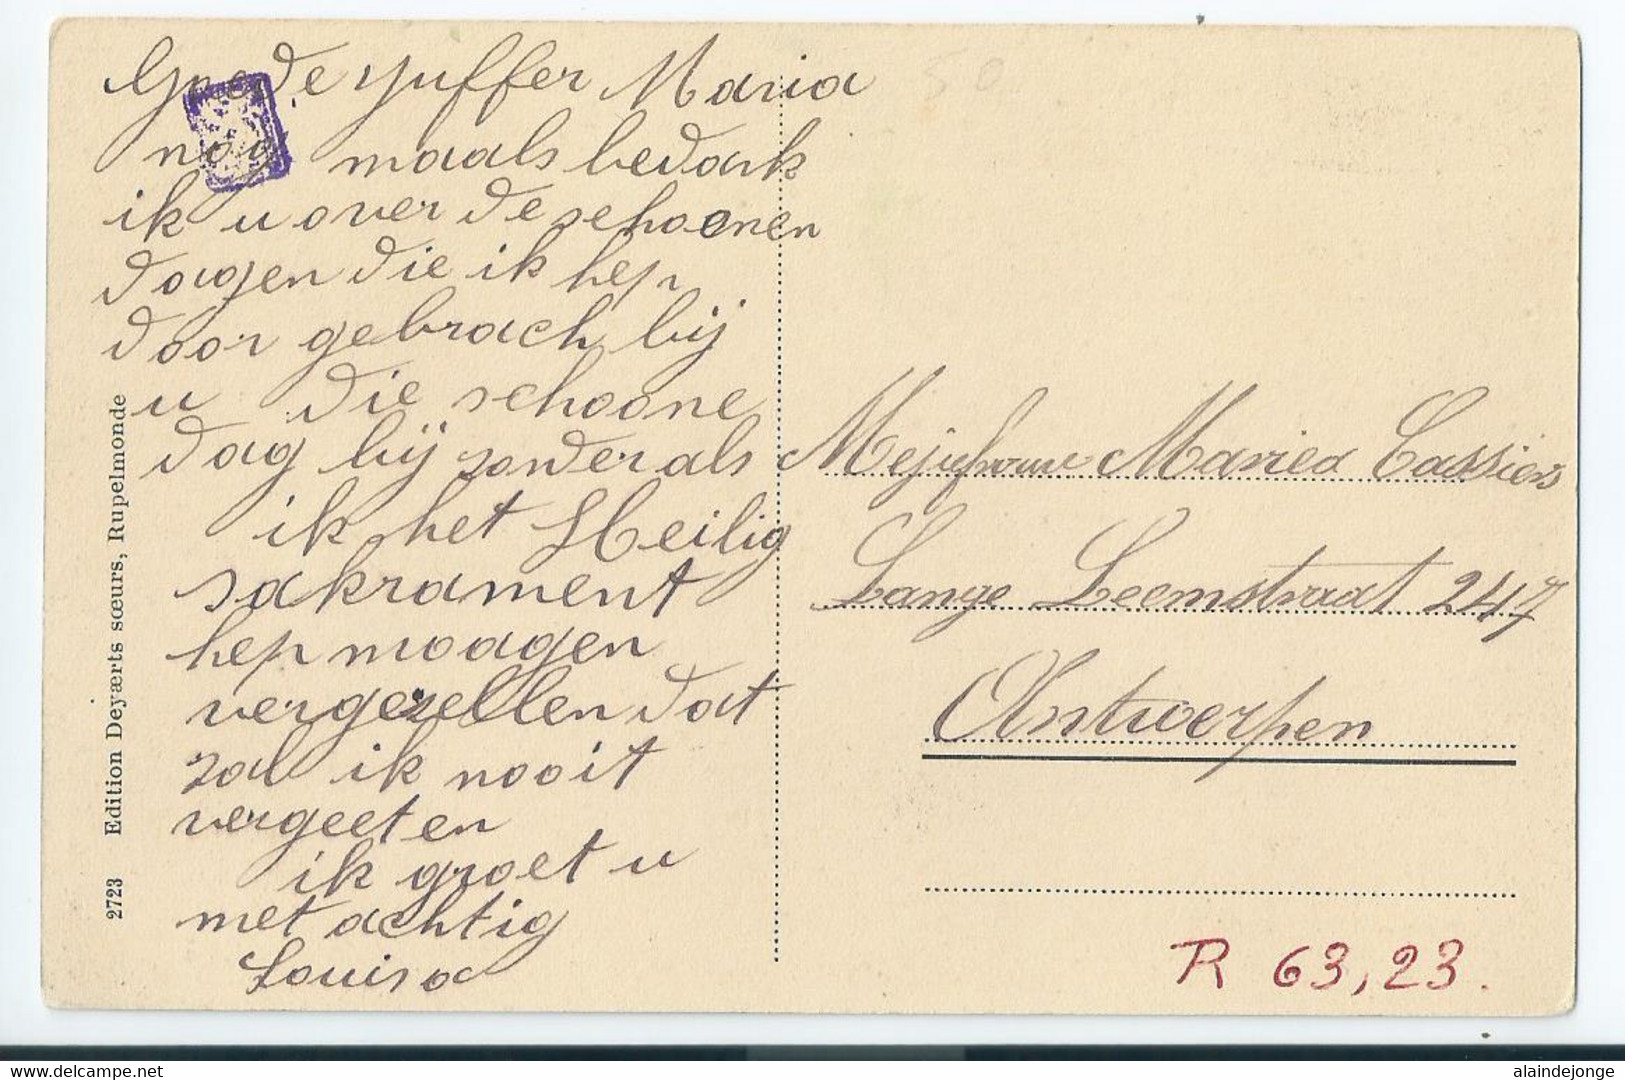 Goede yuffer Maria
nog maals bedank
ik u over de schoonen
dagen die ik hep
door gebrach bij
u die schoone
dag bij sonder als
ik het Heilig
sakrament
hep moagen
vergezellen dat
zal ik nooit
vergeeten
ik groet u
met achtig
Louisa
Mejufvrouw Mariea Cassiers
Lange Leemstraat 247
Antwerpen
R 63,23.
2723 Edition Deyærts sœurs, Rupelmonde
delcampe.net
alaindejonge